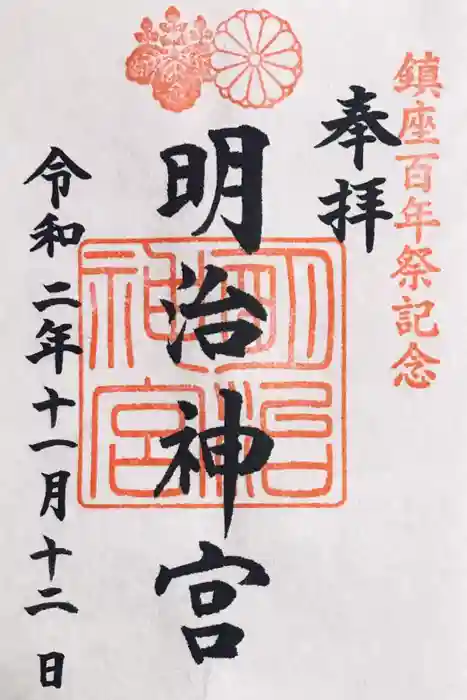 鎮座百年祭記念
奉拝
明治神宮
明治神宮
令和二年十一月十二日